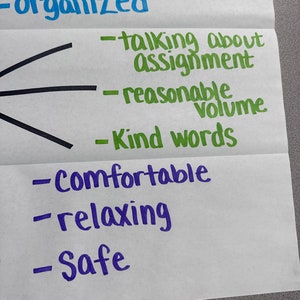 -organized
-talking about
assignment
-reasonable
volume
-Kind words
-Comfortable
-relaxing
-Safe